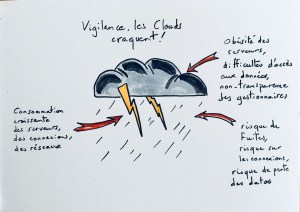 Vigilance, les Clouds
craquent !
Obésité des
serveurs,
difficultés d'accès
aux données,
non-transparence
des gestionnaires
Consommation
croissante
des serveurs,
des connexions,
des réseaux
risque de
fuites,
risque sur
les connexions,
risque de perte
des datas